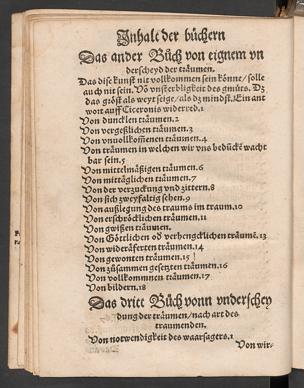 Jnhalt der büchern
Das ander Bůch von eignem vn
derscheyd der träumen.
Das dise kunst nit vollkommen sein könne / solle
auch nit sein. Võ vnsterbligkeit des gmüts. Dz
das gröst als weyt seige / als dz mindst. Ein ant
wort auff Ciceronis widerred.1
Von duncklen träumen.2
Von vergeßlichen träumen.3
Von vnuollkom̃nen träumen.4
Von träumen in welchen wir vns bedückẽ wacht
bar sein.5
Von mittelmäßigen träumen.6
Von mittäglichen träumen.7
Von der verzuckung vnd zittern.8
Von sich zweyfaltig sehen.9
Von außlegung des traums im traum.10
Von erschröcklichen träumen.11
Von gwißen träumen.
Von Göttlichen od verhengcklichen träumẽ.13
Von wideräferten träumen.14
Von gewonten träumen.15
Von zůsammen gesetzten träumen.16
Von vollkommnen träumen.17
Von bildern.18
Das dritt Bůch vonn vnderschey
dung der träumen / nach art des
traumenden.
Von notwendigkeit des waarsagers.1
Von wir-